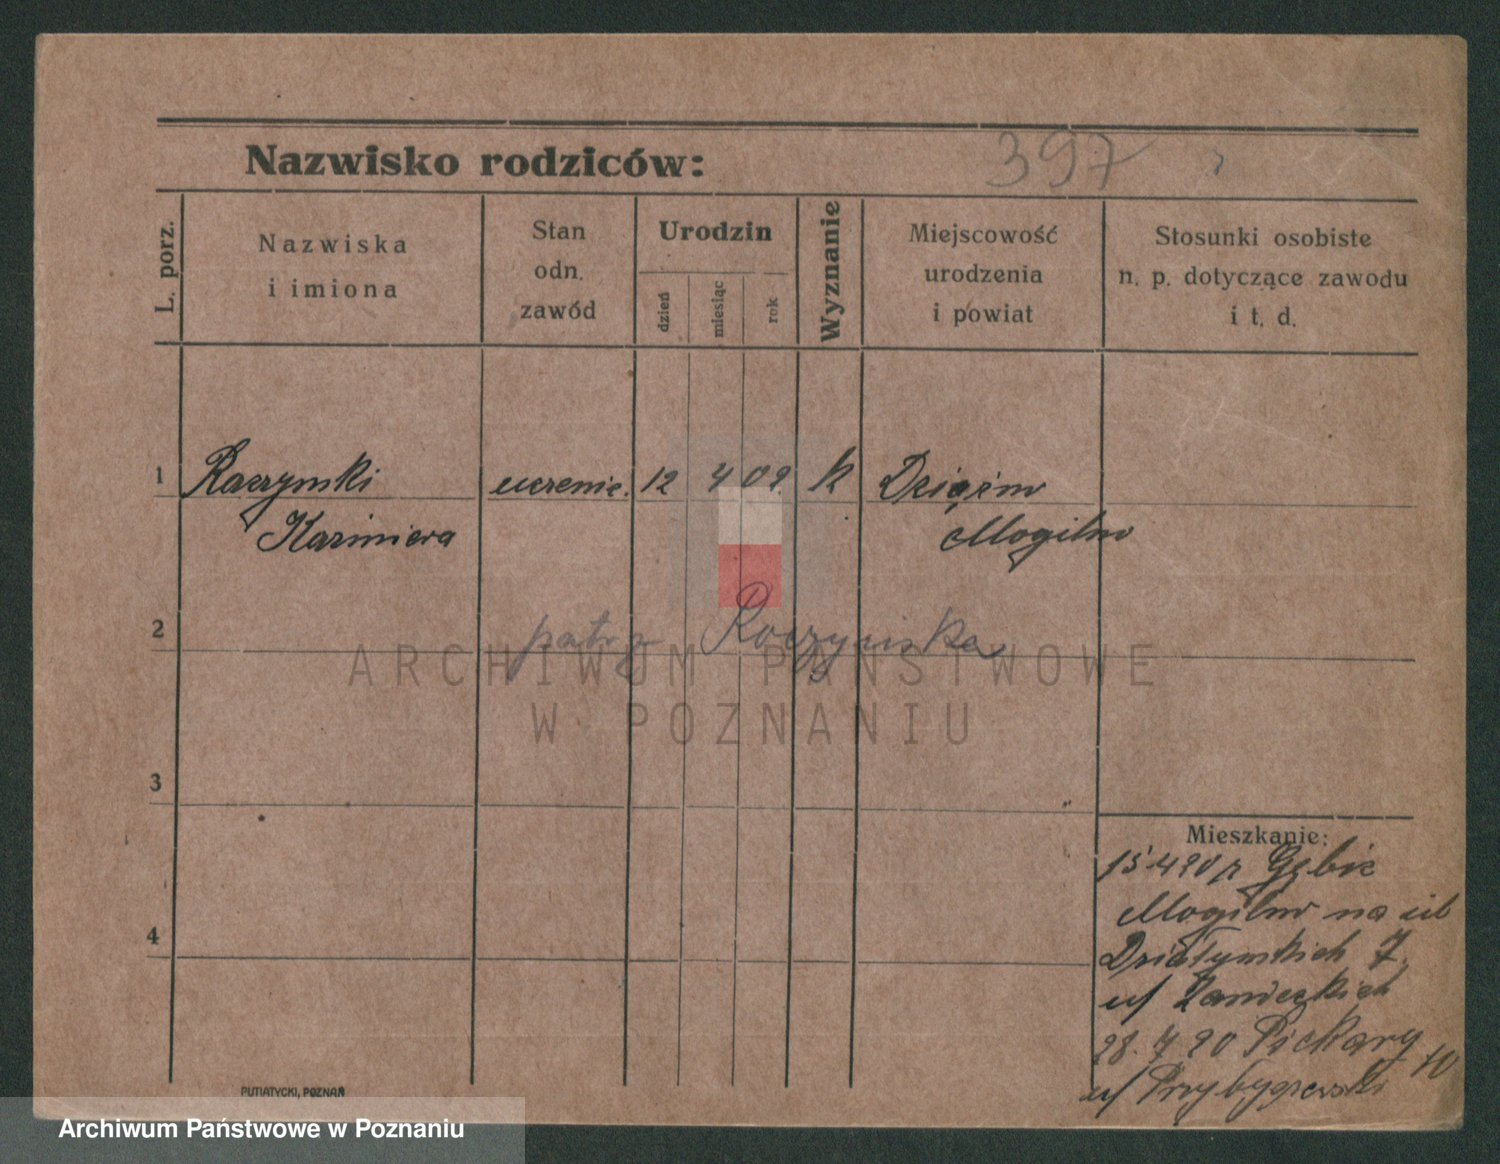 Nazwisko rodziców:
397
L. porz.
Nazwiska
i imiona
Stan
odn.
zawód
Urodzin
dzień
miesiąc
rok
Wyznanie
Miejscowość
urodzenia
i powiat
Stosunki osobiste
n. p. dotyczące zawodu
i t. d.
1 Raczynski uczenic. 12 4 09. k
Kazimiera Mogilno
2 patrz Raczyńska
ARCHIWUM PAŃSTWOWE
W POZNANIU
3
Mieszkanie:
4
Mogilno na ul
Działynskich 7.
u/
28. 7 20 Piekary 10
u/ Przybyszewski
PUTIATYCKI, POZNAŃ
Archiwum Państwowe w Poznaniu